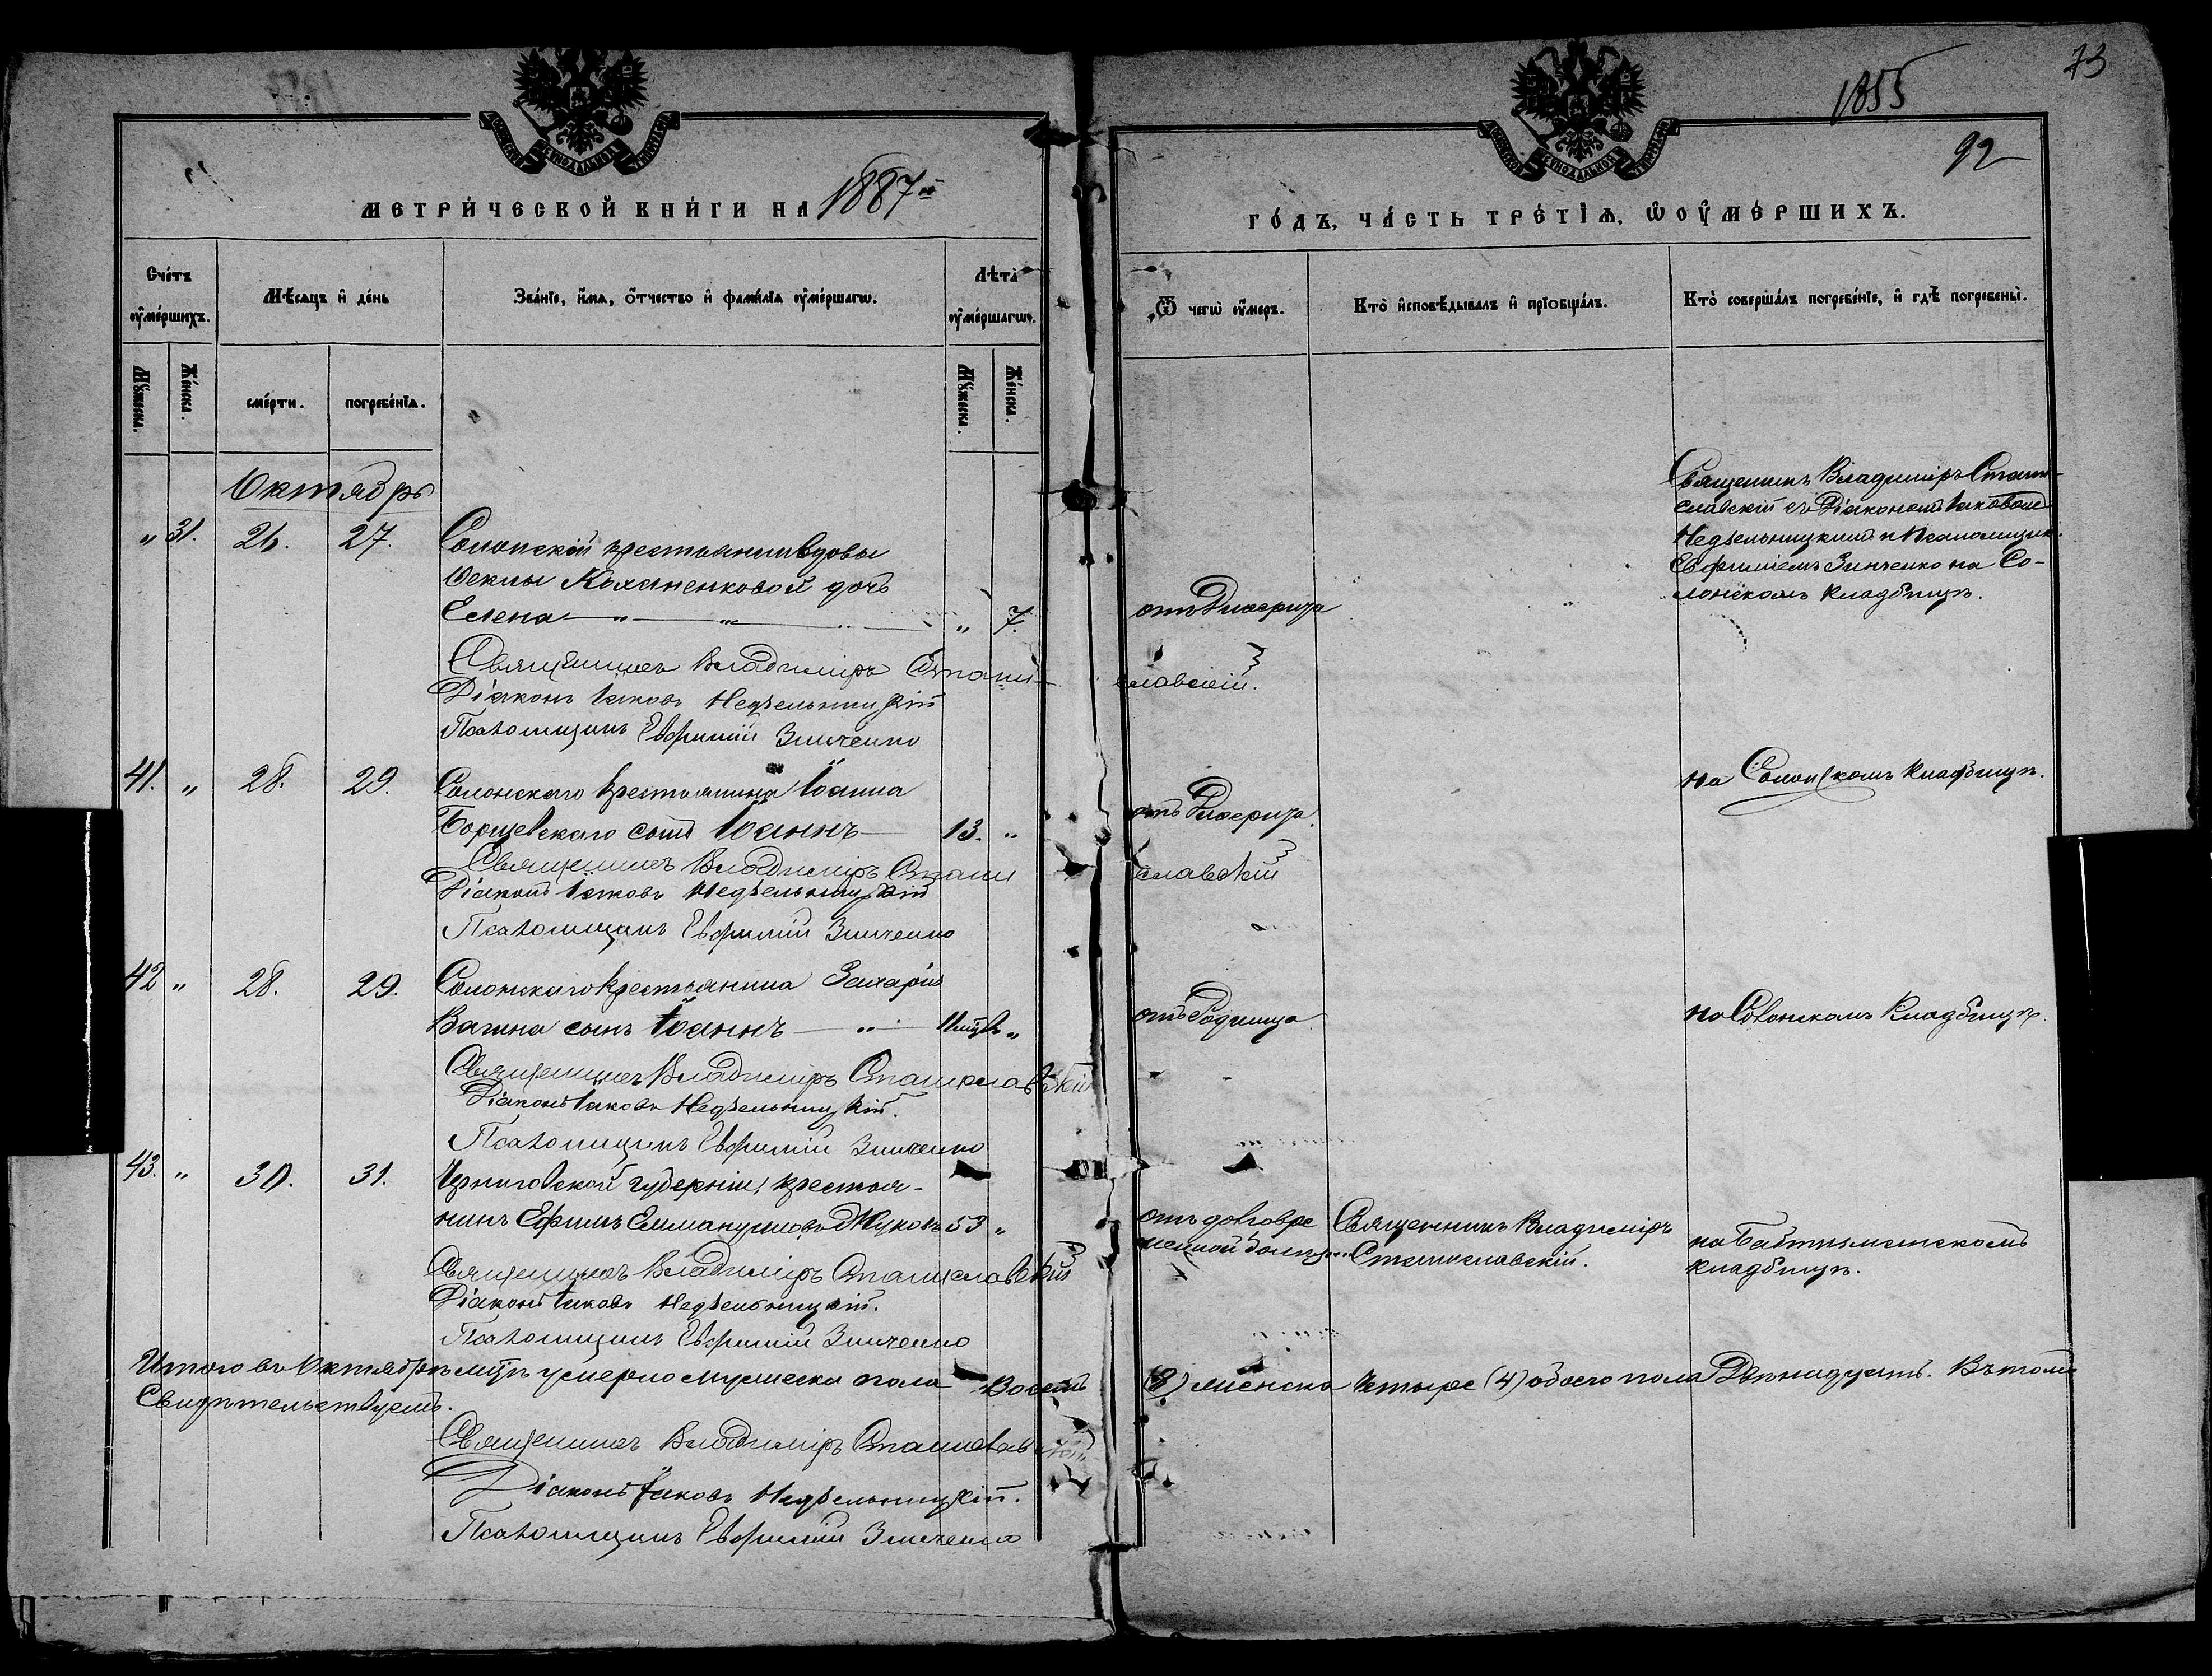 73
1855
92
МЕТРИЧЕСКОЙ КНИГИ НА 1887й
ГОДЪ, ЧАСТЬ ТРЕТІѦ, Ѿ ОУМЕРШИХЪ.
Счетъ оумершихъ.
Мѣсяцъ и день
Званіе, имя, отчество и фамиліа оумершагѡ.
Лѣта оумершагѡ.
Ѿ чегѡ оумеръ.
Кто исповѣдывалъ и пріобщалъ.
Кто совершалъ погребеніе, и гдѣ погребены.
Мужеска.
Женска.
смерти.
погребеніа.
Мужеска.
Женска.
Октябрь
" 31. 26. 27. Солонской крестьянки вдовы
Феклы Коханенковой дочь
Елена " " " " 7. отъ Дифтерита
Священникъ Владиміръ Стани-
славскій съ Діакономъ Іаковомъ
Недѣльницкимъ и Псаломщик.
Евфиміемъ Зинченко на Со-
лонскомъ кладбищѣ.
Священникъ Владиміръ Станиславскій.
Діаконъ Іаковъ Недѣльницкій
Псаломщикъ Евфимій Зинченко
41. " 28. 29. Солонскаго крестьянина Іоанна
на Солонскомъ кладбищѣ.
Борщевскаго сынъ Іоаннъ 13. " отъ Дифтерита.
Священникъ Владиміръ Станиславскій
Діаконъ Іаковъ Недѣльницкій
Псаломщикъ Евфимій Зинченко
42 " 28. 29. Солонскаго крестьянина Захарія
сынъ Іоаннъ " " отъ Родимца
на Солонскомъ Кладбищѣ.
Священникъ Владиміръ Станиславскій
Діаконъ Іаковъ Недѣльницкій.
Псаломщикъ Евфимій Зинченко
43. " 30. 31. Черниговской губерніи, крестья-
нинъ Ефимъ Еммануиловъ Жуковъ 53 "
отъ долговре
менной болѣзни
Священникъ Владиміръ
Станиславскій.
на
кладбищѣ.
Священникъ Владиміръ Станиславскій
Діаконъ Іаковъ Недѣльницкій.
Псаломщикъ Евфимій Зинченко
Итого въ Октябрѣ мцѣ умерло мужеска пола Восемь (8) женска Четыре (4) обоего пола Двѣнадцать. Въ томъ
Свидѣтельствуемъ.
Священникъ Владиміръ Станиславскій
Діаконъ Іаковъ Недѣльницкій.
Псаломщикъ Евфимій Зинченко